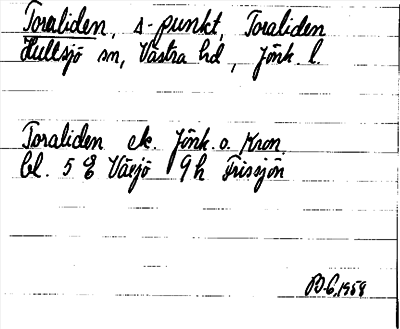 Toraliden, s-punkt, Toraliden
Hultsjö sn, Västra hd, Jönk. l.
Toraliden ek. Jönk. o. Kron.
bl. 5 E Växjö 9 h Frissjön
1958